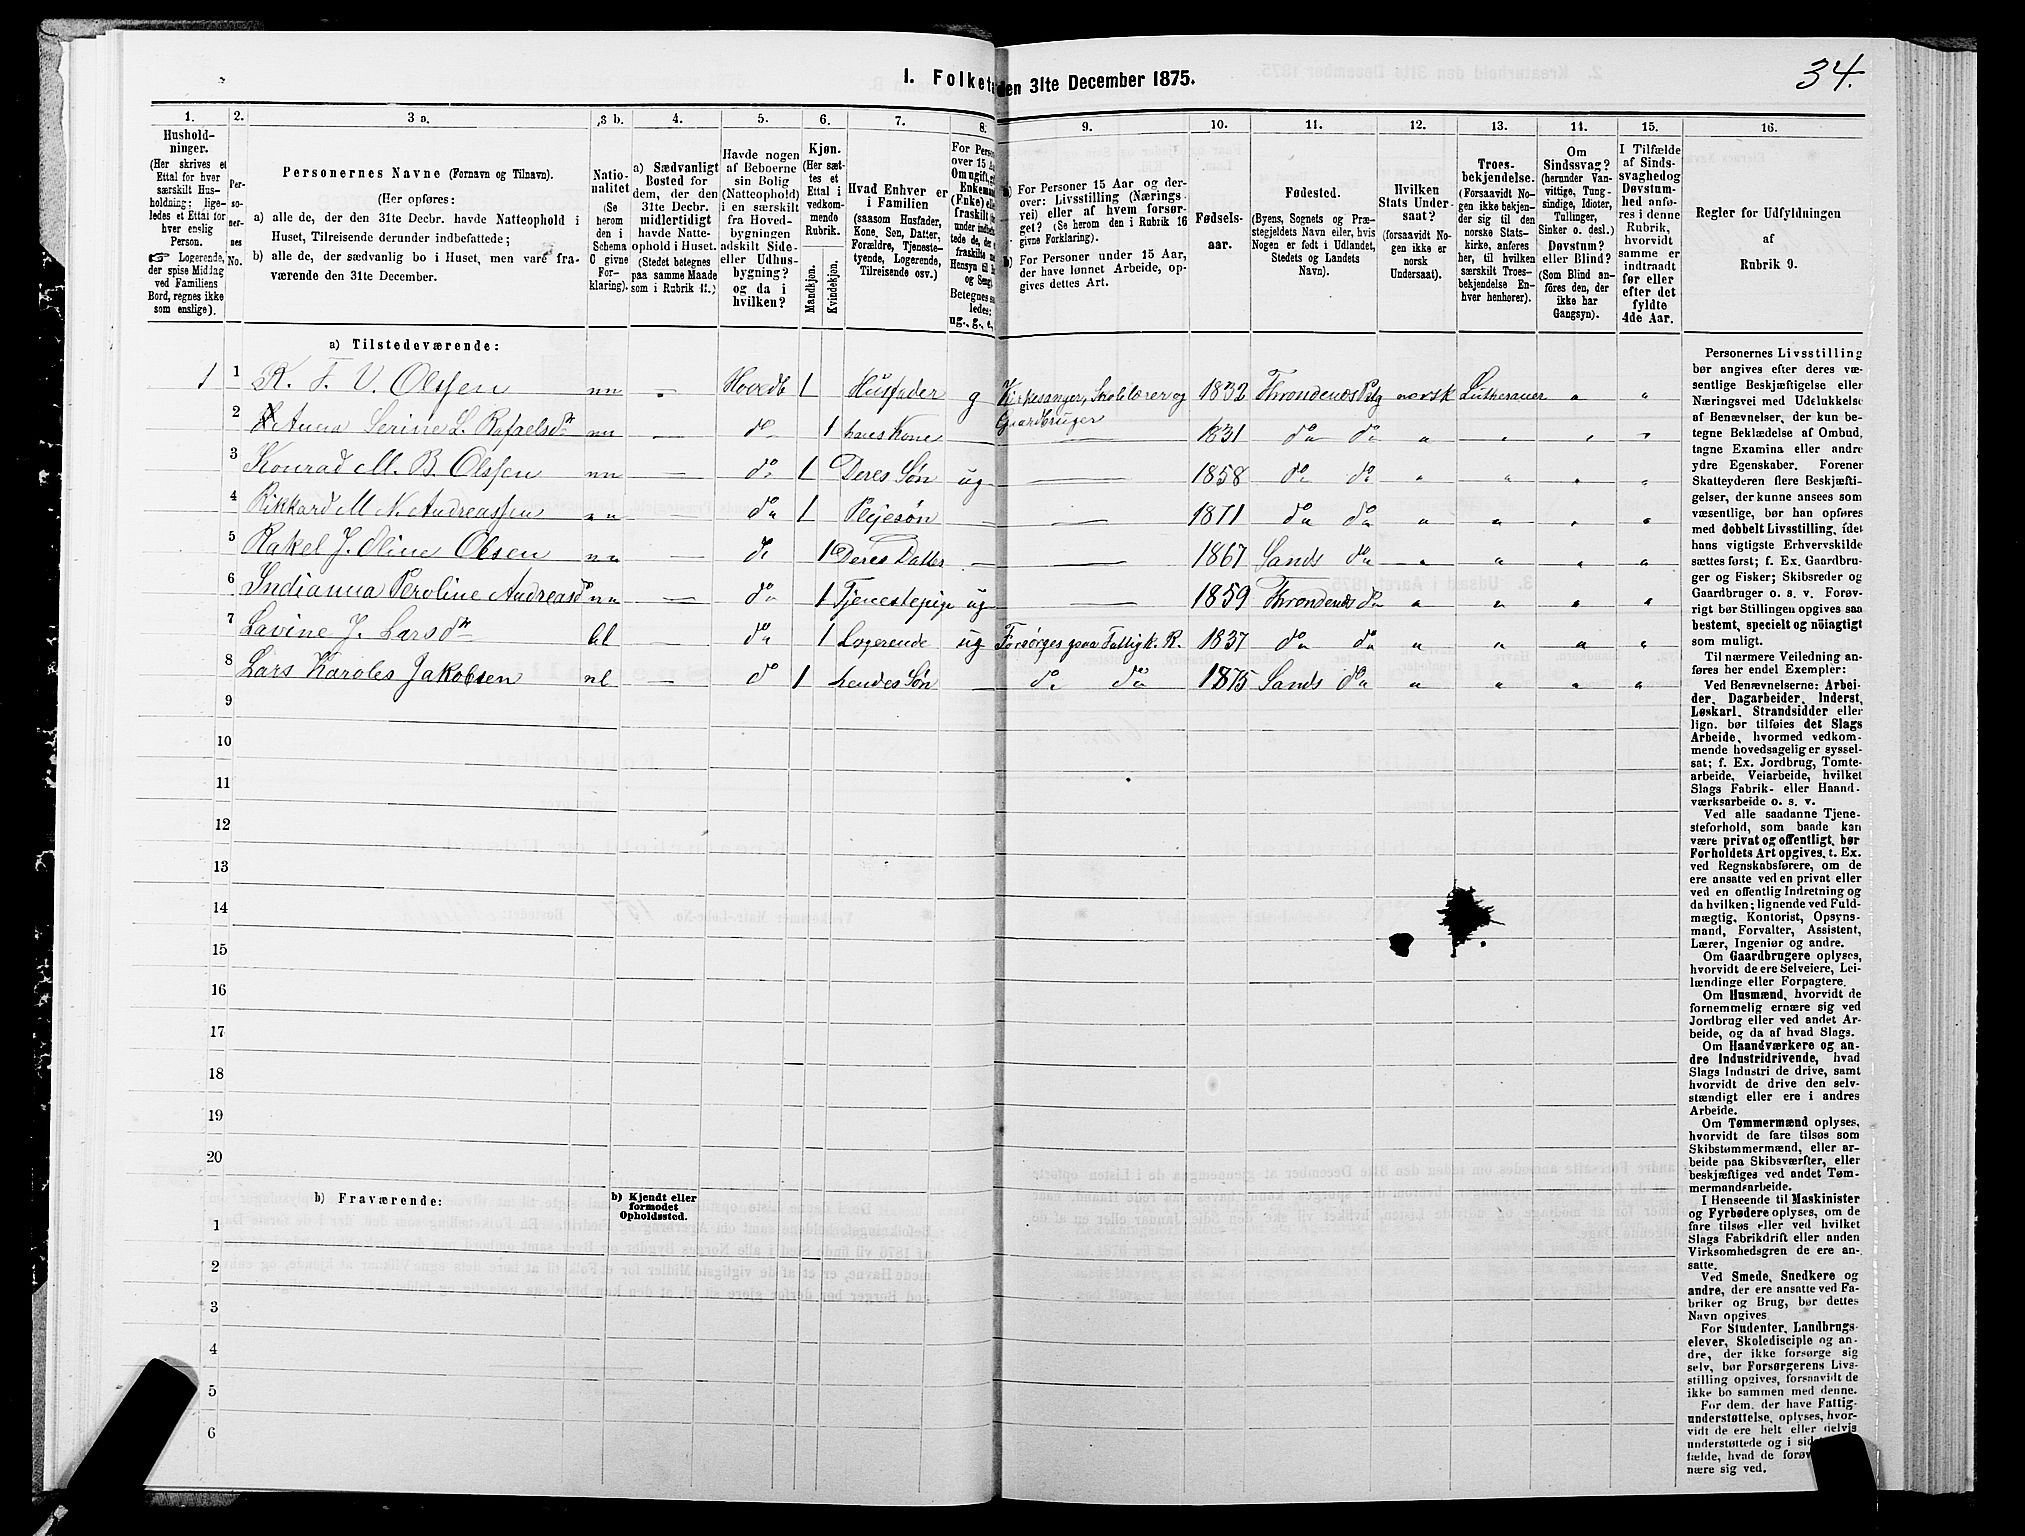 I. Folketæ den 31te December 1875.
34.
1. 2. 3 a. 3 b. 4. 5. 6. 7. 8. 9. 10. 11. 12. 13. 14. 15. 16.
Husholdninger.
(Her skrives et
Ettal for hver
særskilt Husholdning; ligeledes et Ettal for
hver enslig
Person.
☞ Logerende,
der spise Middag
ved Familiens
Bord, regnes ikke
som enslige).
Personernes No.
Personernes Navne (Fornavn og Tilnavn).
(Her opføres:
a) alle de, der den 31te Decbr. havde Natteophold i
Huset, Tilreisende derunder indbefattede;
b) alle de, der sædvanlig bo i Huset, men vare fraværende den 31te December.
Nationalitet
(Se
herom
den i
Schema
C givne
Forklaring).
a) Sædvanligt
Bosted for
dem, der den
31te Decbr.
midlertidigt
havde Natteophold i Huset.
(Stedet betegnes
paa samme Maade
som i Rubrik 11.)
Havde nogen
af Beboerne
sin Bolig
(Natteophold)
i en særskilt
fra Hovedbygningen
adskilt Side-
eller Udhusbygning?
og da i
hvilken?
Kjøn.
(Her sættes et
Ettal i
vedkommende
Rubrik.
Mandkjøn.
Kvindekjøn.
Hvad Enhver er
i Familien
(saasom Husfader,
Kone, Søn, Datter,
Forældre, Tjenestetyende, Logerende,
Tilreisende osv.)
a) For Personer 15 Aar og derover: Livsstilling (Næringsvei) eller af hvem forsørget? (Se herom den i Rubrik 16
givne Forklaring).
b) For Personer under 15 Aar,
der have lønnet Arbeide, opgives dettes Art.
Fødselsaar.
Fødested.
(Byens, Sognets og Præstegjeldets Navn eller, hvis
Nogen er født i Udlandet,
Stedets og Landets
Navn).
Hvilken
Stats Undersaat?
(forsaavidt Nogen ikke er
norsk
Undersaat).
Troesbekjendelse.
(Forsaavidt Nogen ikke bekjender sig til den
norske Statskirke, anføres
her, til hvilken
særskilt Troesbekjendelse Enhver henhører).
Om
Sindssvag?
(herunder Vanvittige, Tungsindige, Idioter,
Tullinger,
Sinker o. desl.)
Døvstum?
eller Blind?
(Som Blind anføres den, der
ikke har
Gangsyn).
I Tilfælde
af Sindssvaghed og
Døvstumhed anføres i denne
Rubrik,
hvorvidt
samme er
indtraadt
før eller
efter det
fyldte
4de Aar.
Regler for Udfyldningen
af
Rubrik 9.
a) Tilstedeværende:
1 1 K. F. V. Olssen nn - Hovedb 1 Husfader g Kirkesanger, Skolelærer og Gaardbruger 1832 Throndenæs Pstg norsk Lutheraner " "
2 Anna Serine L. Rafaelsdtr nn — do 1 hans Kone — — 1831 do do " " " "
3 Konrad M. B. Olssen nn — do 1 Deres Søn ug — 1858 do do " " " "
4 Rikkard M N Andreassen nn — do 1 Plejesøn — — 1871 do do " " " "
5 Rakel J. Oline Olsen nn — do 1 Deres Datter — — 1867 Sands do " " " "
6 Indianna Peroline Andreasd nn — do 1 Tjenestepige ug — 1859 Throndenæs do " " " "
7 Lavine J. Larsdtr bl — do 1 Logerende ug Forsørges gena Fattigk. R. 1837 do do " " " "
8 Lars Karoles Jakobsen nl — do 1 hendes Søn — do do 1875 Sands do " " " "
9
10
11
12
13
14
15
16
17
18
19
20
b) Fraværende:
b) Kjendt eller
formodet
Opholdssted.
1
2
3
4
5
6
Personernes Livsstilling
bør angives efter deres væsentlige Beskjæftigelse eller
Næringsvei med Udelukkelse
af Benævnelser, der kun betegne Beklædelse af Ombud,
tagne Examina eller andre
ydre Egenskaber. Forener
Skatteyderen flere Beskjæftigelser, der kunne ansees som
væsentlige, bør han opføres
med dobbelt Livsstilling, idet
hans vigtigste Erhvervskilde
sættes først; f. Ex. Gaardbruger og Fisker; Skibsreder og
Gaardbruger o. s. v. Forøvrigt bør Stillingen opgives saa
bestemt, specielt og nöiagtigt
som muligt.
Til nærmere Veiledning anføres her endel Exempler:
Ved Benævnelserne: Arbeider, Dagarbeider, Inderst,
Løskarl, Strandsidder eller
lign. bør tilføies det Slags
Arbeide, hvormed vedkommende hovedsagelig er sysselsat; f. Ex. Jordbrug, Tomtearbeide, Veiarbeide, hvilket
Slags Fabrik- eller Haandværksarbeide o. s. v.
Ved alle saadanne Tjenesteforhold, som baade kan
være privat og offentligt, bør
Forholdets Art opgives, t. Ex.
ved Regnskabsførere, om de
ere ansatte ved en privat eller
ved en offentlig Indretning og
da hvilken; lignende ved Fuldmægtig, Kontorist, Opsynsmand, Forvalter, Assistent,
Lærer, Ingeniør og andre.
Om Gaardbrugere oplyses,
hvorvidt de ere Selveiere, Leilændinge eller Forpagtere.
Om Husmænd, hvorvidt de
fornemmelig ernære sig ved
Jordbrug eller ved andet Arbeide, og da af hvad Slags.
Om Haandværkere og andre Industridrivende, hvad
Slags Industri de drive, samt
hvorvidt de drive den selvstændigt eller ere i andres
Arbeide.
Om Tømmermænd oplyses,
hvorvidt de fare tilsøs som
Skibstømmermænd, eller arbeide paa Skibsværfter, eller
beskjæftiges ved andet Tømmermandsarbeide.
I Henseende til Maskinister
og Fyrbødere oplyses, om de
fare tilsøs eller ved hvilket
Slags Fabrikdrift eller anden
Virksomhedsgren de ere ansatte.
Ved Smede, Snedkere og
andre, der ere ansatte ved Fabriker og Brug, bør dettes
Navn opgives
For Studenter, Landbrugselever, Skoledisciple og andre, der ikke forsørge sig
selv, bør Forsørgerens Livsstilling opgives, forsaavidt de
ikke bo sammen med denne.
For dem, der have Fattigunderstøttelse, oplyses, hvorvidt de ere helt eller delvis
understøttede og i
fælde, hvad de
nære sig ved.